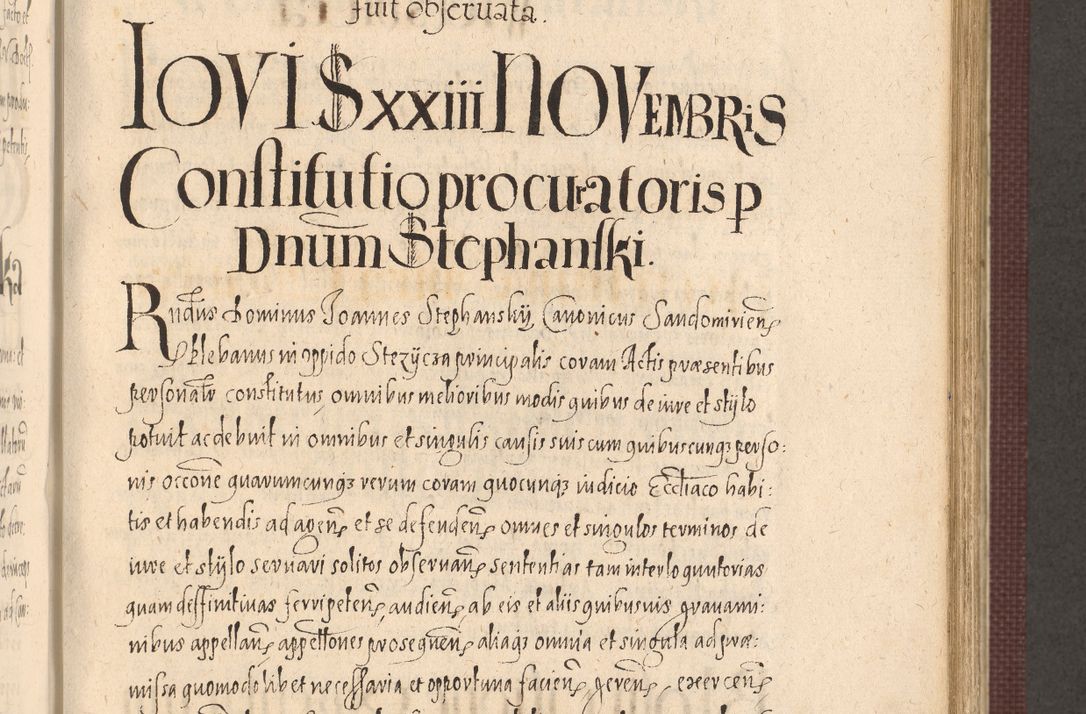 fuit obseruata.
IOVIS xxiii NOVEMBRiS
Constitutio procuratoris p
Dnum Stephanski.
Rndus Dominus Joannes Stephanskij, Canonicus Sandomirien
Plebanus in oppido Stezijcza principalis coram Actis præsentibus
personalr constitutus, omnibus melioribus modis quibus de iure et stijlo
potuit ac debuit in omnibus et singulis causis suis cum quibuscunq perso:
nis occone quarumcunq rerum coram quocunq iudicio Eccliaco habi:
tis et habendis ad agen et se defenden omnes et singulos terminos de
iure et stijlo seruari solitos obseruan sententias tam interloquutorias
quam deffinitiuas ferripeten, audien, ab eis et aliis quibusuis grauami:
nibus appellan appellones prosequen, aliaq omnia et singula ad præ:
missa quomodolibet necessaria et opportuna facien, geren, exercen